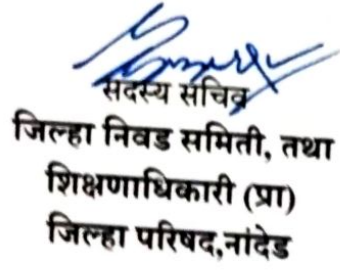 सदस्य सचिव
जिल्हा निवड समिती, तथा
शिक्षणाधिकारी (प्रा)
जिल्हा परिषद,नांदेड